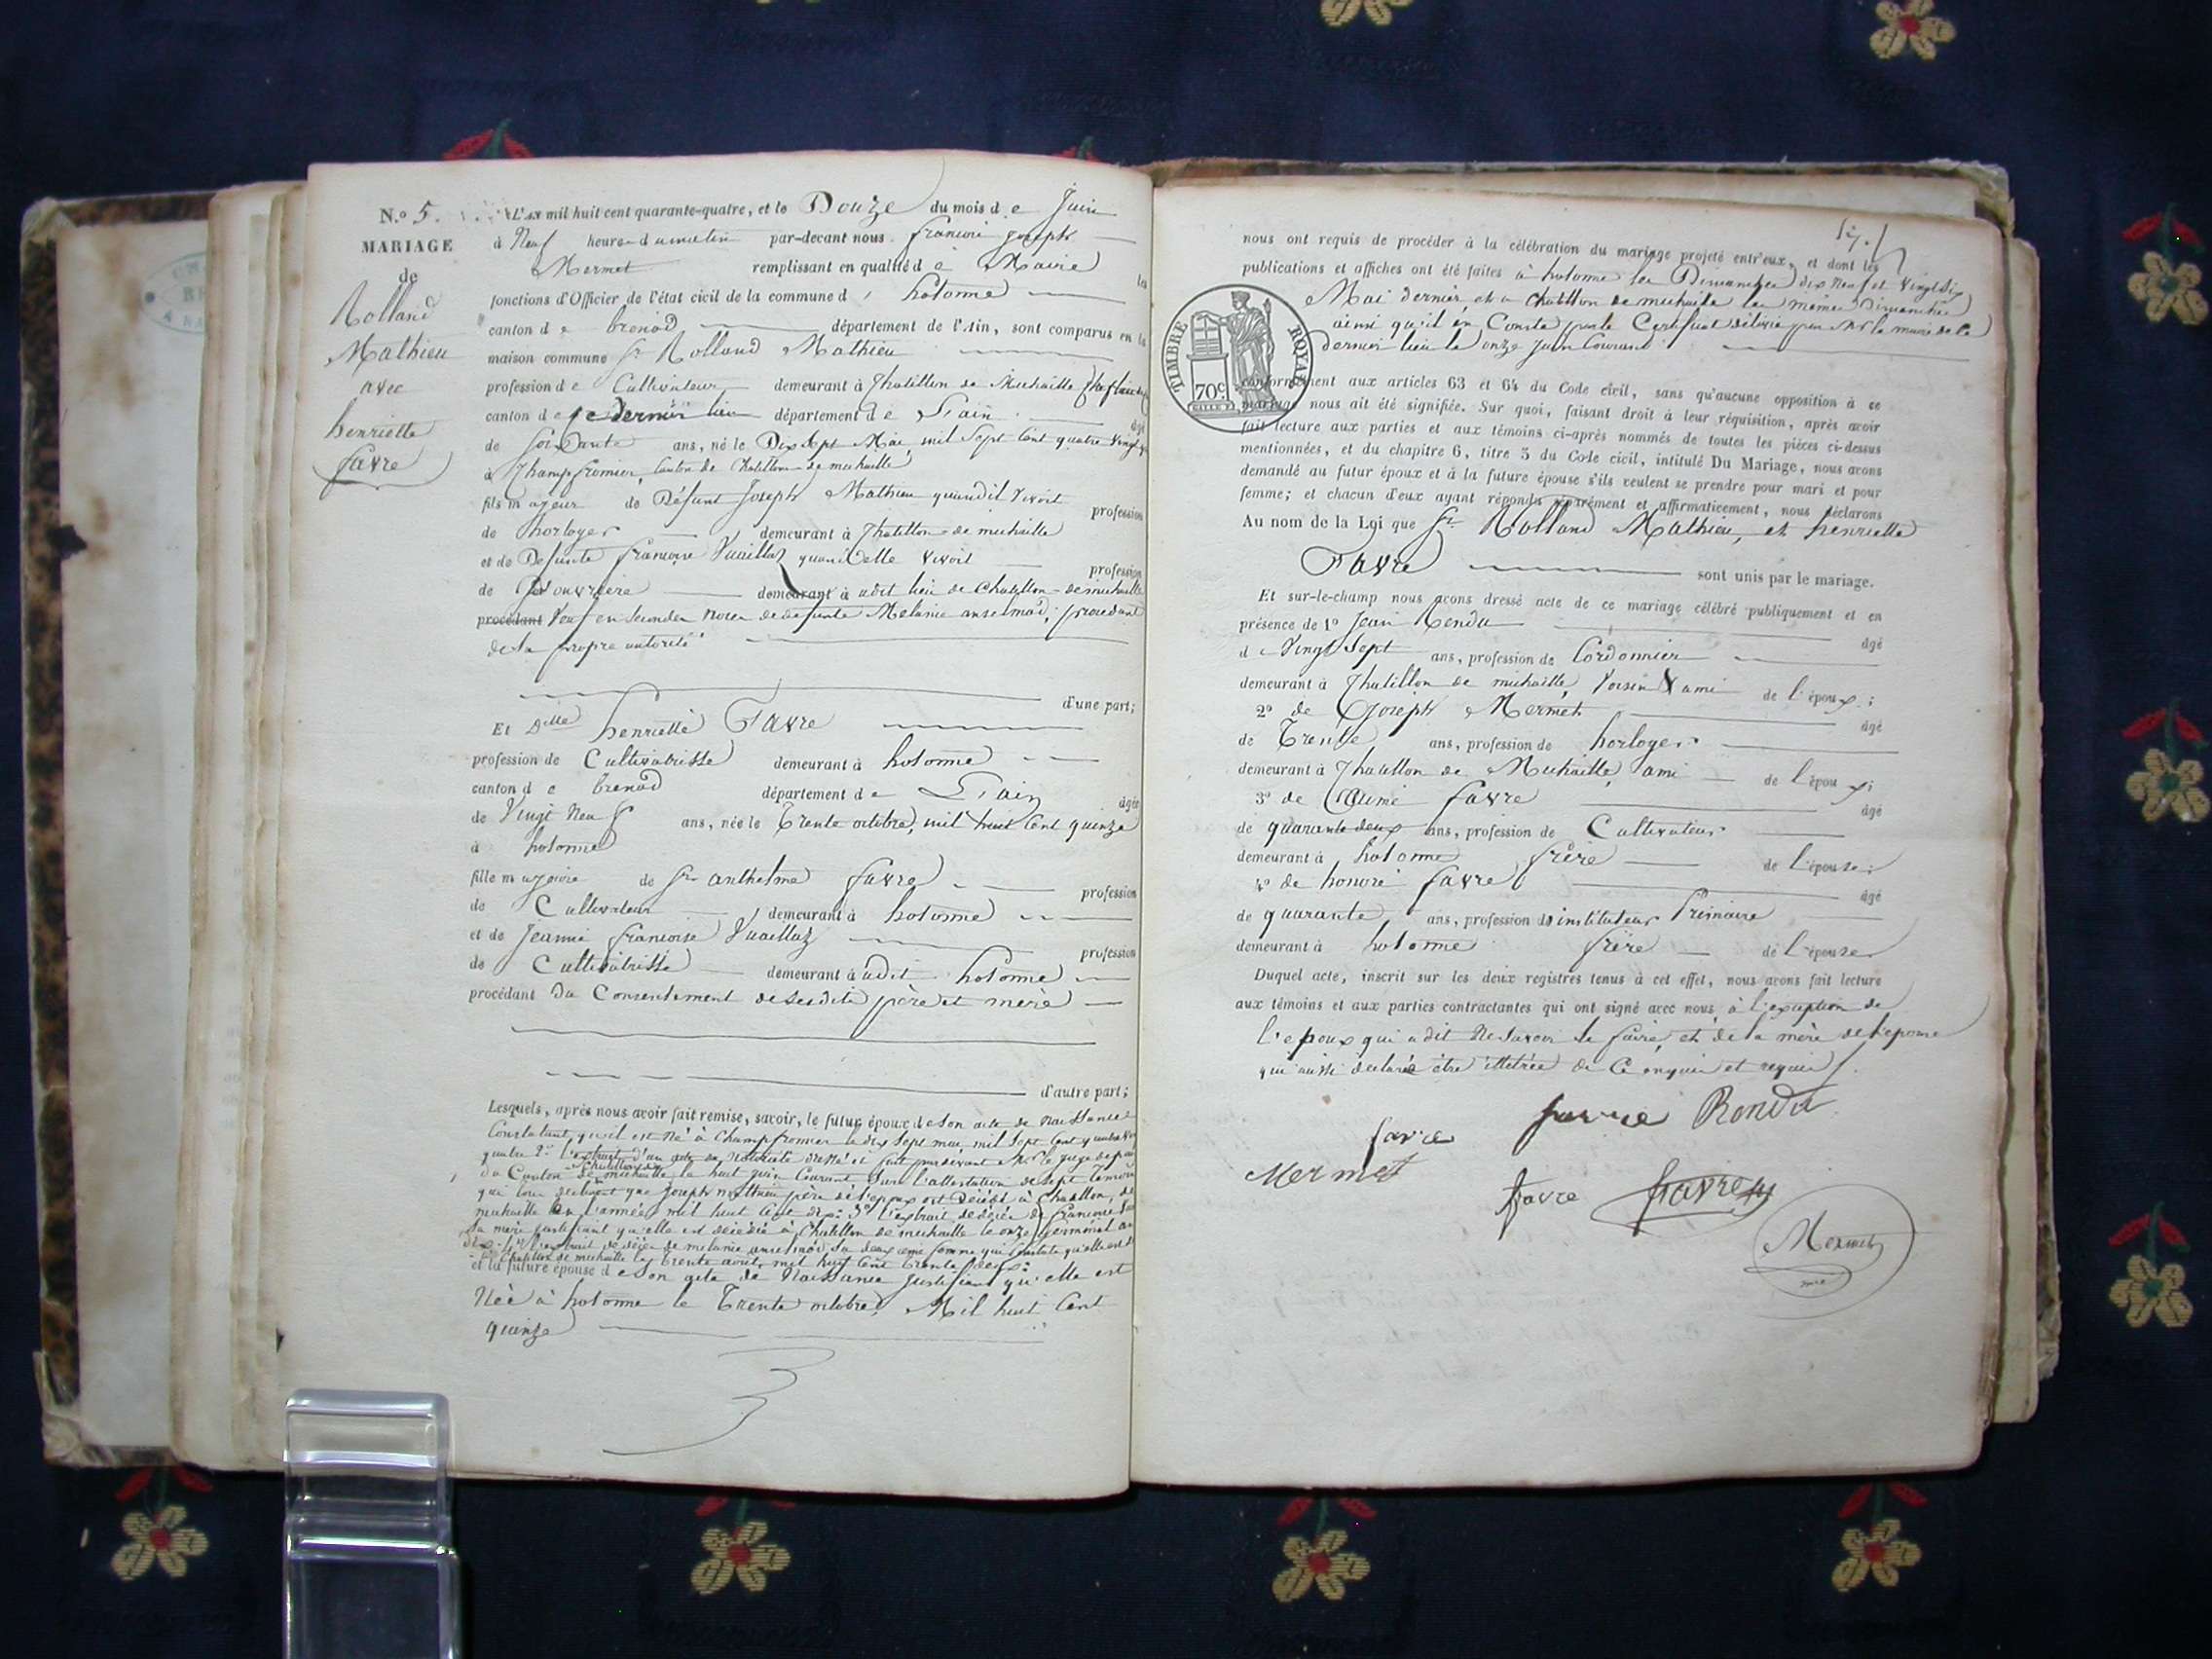 N.º 5.
MARIAGE
de
Rolland
Mathieu
avec
henriette
favre
L'an mil huit cent quarante-quatre, et le Douze du mois de Juin
à Neuf heure du matin par-devant nous francois joseph
Mermet remplissant en qualité de Maire les
fonctions d'Officier de l'état civil de la commune d' hotonne
canton de brenod département de l'Ain, sont comparus en la
maison commune Sr Rolland Mathieu
profession de Cultivateur demeurant à Chatillon de Michaille
canton de ce dernier lieu département de L'ain âgé
de soixante ans, né le Dix Sept Mai mil Sept Cent quatre Vingt
à Champfromier, Canton de Chatillon de michaille
fils majeur de Défunt Joseph Mathieu quand il vivoit profession
de horloger demeurant à Chatillon de michaille
et de Defunte françoise Vuaillat quand elle vivoit profession
de ouvriere demeurant à udit lieu de Chatillon de michaille
procédant Veuf en Secondes noces de defunte Melanie anselmod, procedant
de sa propre autorité
d'une part;
Et Dlle henriette Favre
profession de Cultivatrisse demeurant à hotonne
canton de brenod département de L'ain âgée
de Vingt Neuf ans, née le Trente octobre, mil huit Cent quinze
à hotonne
fille majeure de Sr anthelme favre profession
de Cultivateur demeurant à hotonne
et de Jeanne françoise Vuaillat profession
de Cultivatrisse demeurant à udit hotonne
procédant du Consentement de sesdits père et mère
d'autre part;
Lesquels, après nous avoir fait remise, savoir, le futur époux de son acte de naissance
Constatant, qu'il est né à Champfromier le dix Sept mai mil Sept Cent quatre Vingt
quatre 2º l'extrait d'un acte de notoriété dressé et fait pardevant Mr le juge de paix
du Canton de Chatillon de michaille le huit juin Courant Sur l'attestation de Sept temoins
que joseph mathieu père de l'epoux est Décédé à Chatillon, de
michaille en l'année mil huit Cent dix: 3º l'extrait de décès de francoise
Sa mère justifiant qu'elle est décédée à Chatillon de michaille le onze germinal an
dix: 4º l'extrait de décès de melanie anselmod Sa deuxieme femme qui Constate qu'elle est
à Chatillon de michaille le trente avril, mil huit Cent trente deux:
et la future épouse de Son acte de Naissance justifiant qu'elle est
Née à hotonne le Trente octobre, Mil huit Cent
quinze
17.
nous ont requis de procéder à la célébration du mariage projeté entr'eux, et dont les
publications et affiches ont été faites à hotonne les Dimanches dix neuf et Vingt Six
Mai dernier et à Chatillon de michaille les mêmes Dimanches
ainsi qu'il en Conste par le Certificat délivré par Mr le maire de ce
dernier lieu le onze Juin Courant
TIMBRE ROYAL
70c.
conformément aux articles 63 et 64 du Code civil, sans qu'aucune opposition à ce
mariage nous ait été signifiée. Sur quoi, faisant droit à leur réquisition, après avoir
fait lecture aux parties et aux témoins ci-après nommés de toutes les pièces ci-dessus
mentionnées, et du chapitre 6, titre 5 du Code civil, intitulé Du Mariage, nous avons
demandé au futur époux et à la future épouse s'ils veulent se prendre pour mari et pour
femme; et chacun d'eux ayant répondu séparément et affirmativement, nous déclarons
Au nom de la Loi que Sr Rolland Mathieu, et henriette
Favre sont unis par le mariage.
Et sur-le-champ nous avons dressé acte de ce mariage célébré publiquement et en
présence de 1º Jean Rendu âgé
de Vingt Sept ans, profession de Cordonnier
demeurant à Chatillon de michaille, Voisin & ami de l'époux;
2º de Joseph Mermet âgé
de Trente ans, profession de horloger
demeurant à Chatillon de Michaille, ami de l'époux;
3º de Aimé favre âgé
de quarante deux ans, profession de Cultivateur
demeurant à hotonne frère de l'épouse;
4º de honoré favre âgé
de quarante ans, profession de instituteur Primaire
demeurant à hotonne frère de l'épouse
Duquel acte, inscrit sur les deux registres tenus à cet effet, nous avons fait lecture
aux témoins et aux parties contractantes qui ont signé avec nous à l'exception de
l'epoux qui a dit ne Savoir le faire, et de la mère de l'epouse
qui aussi declarée être illétrée de Ce enquis et requis
favre favre Rendu
Mermet
favre favre
Mermet
mre